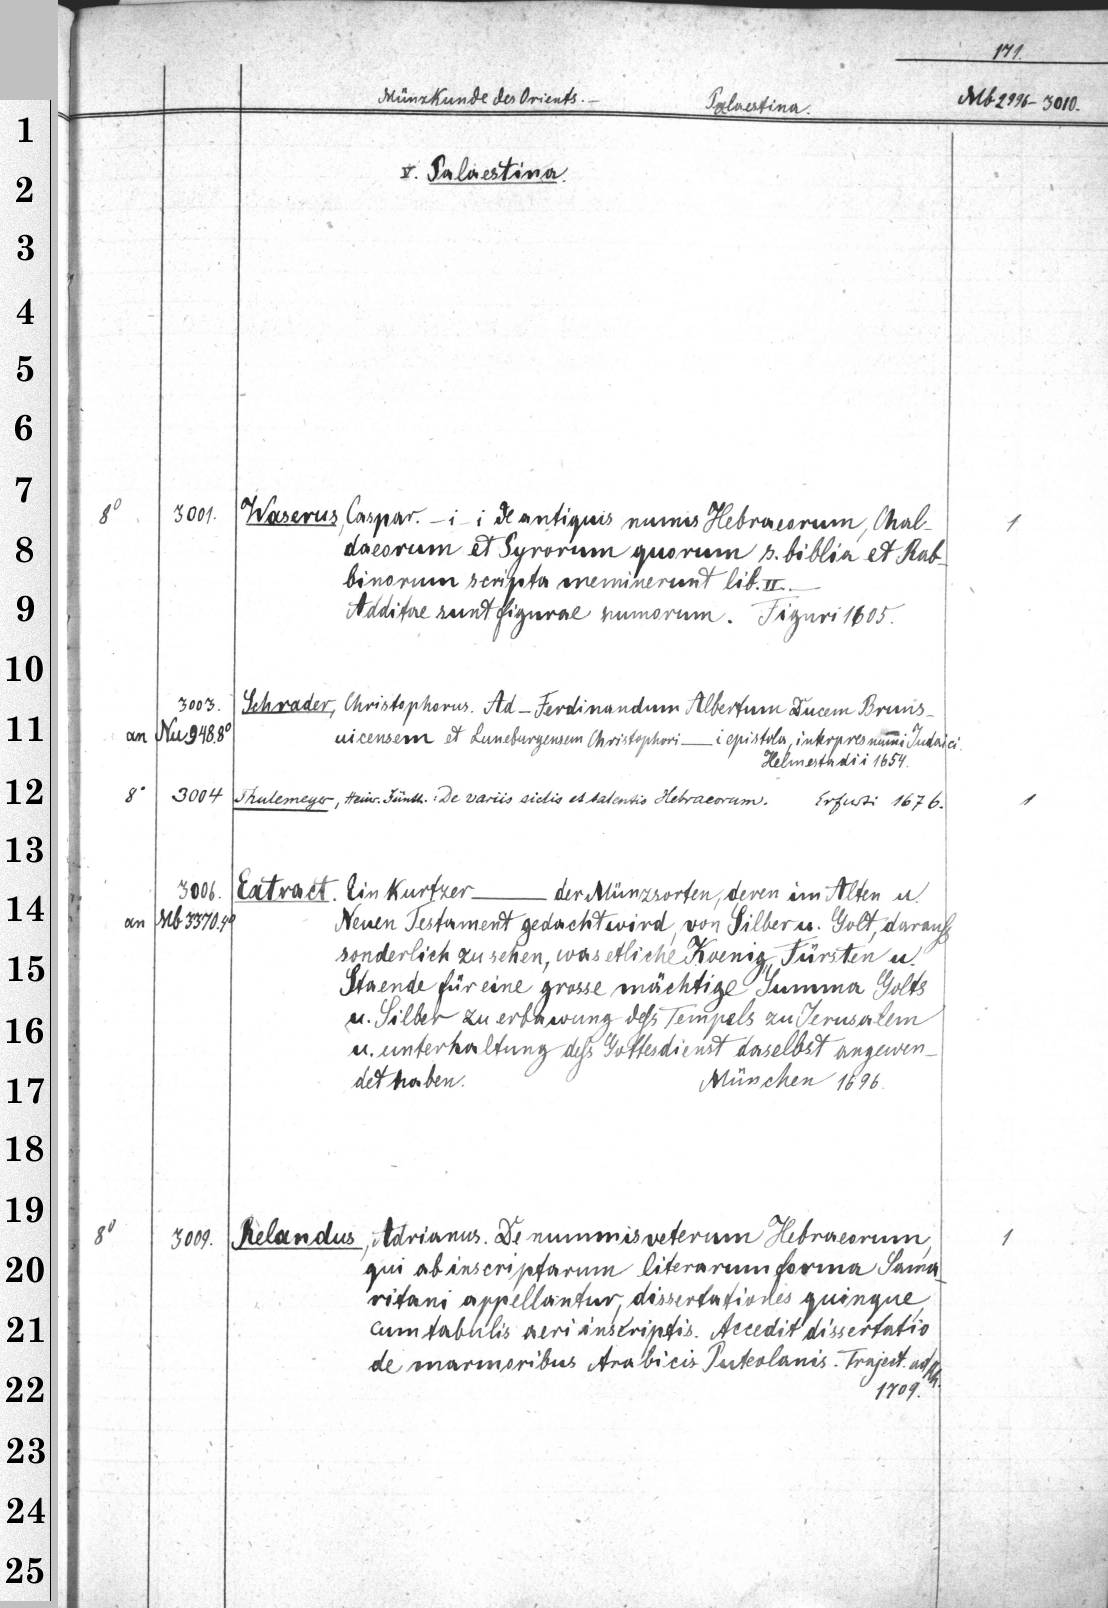 171.
Münzkunde des Orients. — Palaestina. Mb 2996-3010.
V. Palaestina.
8° 3001. Waserus, Caspar. — i — i de antiquis numis Hebraeorum, Chal- 1
daeorum et Syrorum quorum s. biblia et Rab-
binorum scripta meminerunt lib. II. —
Additae sunt figurae numorum. Tiguri 1605.
3003. Schrader, Christophorus. Ad — Ferdinandum Albertum Ducem Bruns-
an Nu 948.8° uicensem et Luneburgensem Christophori — i epistola, interpres numi Judaici
Helmestadii 1654.
8° 3004 Thulemeyer, Heinr. Günth.: De variis siclis et talentis Hebraeorum. Erfurti 1676. 1
3006. Extract. Ein kurtzer — der Münzsorten, deren im Alten u.
an Mb 3370.4° Neuen Testament gedacht wird, von Silber u. Golt, darauß
sonderlich zu sehen, was etliche Koenig, Fürsten u.
Staende für eine grosse mächtige Summa Golts
u. Silber zu erbawung deſs Tempels zu Jerusalem
u. unterhaltung deſs Gottesdienst daselbst angewen-
det haben. München 1696.
8° 3009. Relandus, Adrianus. De nummis veterum Hebraeorum, 1
qui ab inscriptarum literarum forma Sama-
ritani appellantur, dissertationes quinque,
cum tabulis aeri inscriptis. Accedit dissertatio
de marmoribus Arabicis Puteolanis. Traject. ad Rh.
1709.
1
2
3
4
5
6
7
8
9
10
11
12
13
14
15
16
17
18
19
20
21
22
23
24
25